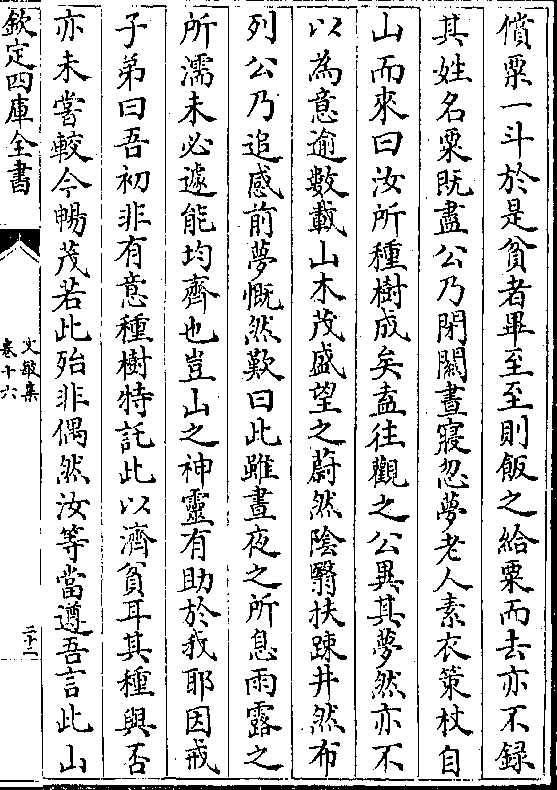 償粟一斗於是貧者畢至至則飯之給粟而去亦不録
其姓名粟既盡公乃閉闗晝寢忽夢老人素衣策杖自
山而來曰汝所種樹成矣盍往觀之公異其夢然亦不
以為意逾數載山木茂盛望之蔚然陰翳扶踈井然布
列公乃追感前夢慨然歎曰此雖晝夜之所息雨露之
所濡未必遽能均齊也豈山之神靈有助於我耶因戒
子弟曰吾初非有意種樹特託此以濟貧耳其種與否
亦未嘗較今暢茂若此殆非偶然汝等當遵吾言此山
欽定四庫全書
文敏集
卷十六
二十二